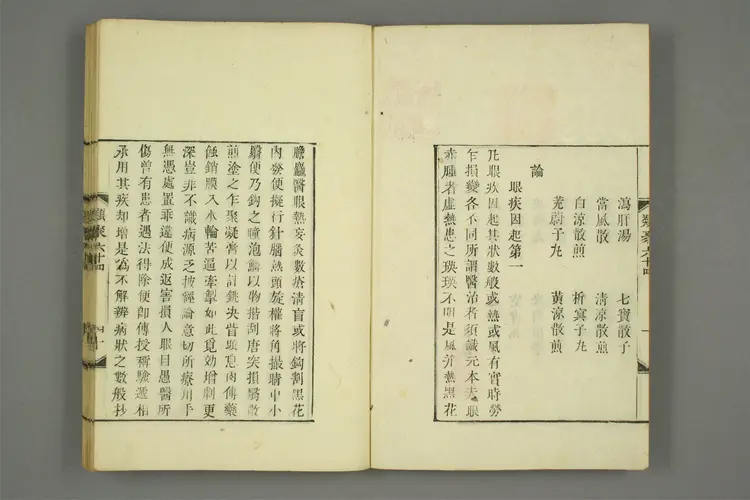 瀉肝湯 七寶散子
當風散 清凉散煎
白涼散煎 析蓂子丸
羌蔚子丸 黃涼散煎
論
眼疾因起第一
凡眼疾因起其狀數般或熱或風有實時勞
乍損變各不同所謂醫治者須識元本夫眼
赤腫者虛熱患之瑛瑛不明是風幷熱黑花
膽麤醫眼熱妄灸數瘡淸盲或將鈎割黑花
內瘀便擬行針腦熱頭旋權將角撮睛中小
翳便乃鈎之瞳泡鱗以物揩刮唐突損翳散
煎塗之乍聚凝膏以訂銚央眥頭息肉傅藥
蝕銷膜入水輪苦逼牽掣如此覓効增劇更
深豈非不識病源乏披經論意切所療用手
無憑處置乖違便成返害損人眼目愚醫所
傷曾有患者遇法得除便卽傳授稱驗遞相
承用其疾却增是爲不解辨病狀之數般抄
類聚六十四